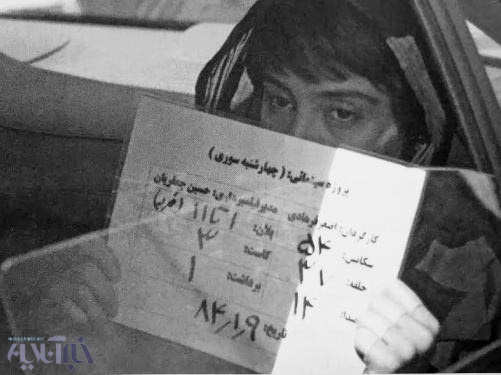 پروژه سینمائی: ( چهارشنبه سوری )
کارگردان: اصغر فرهادی مدیر فیلمبرداری: حسین جعفریان
سکانس: ۵۴ پلان:
حلقه: ۳۱ کاست: ۳
صدا: ۱۳ برداشت: ۱
تاریخ: ۸۴,۱,۹
خبرآنلاین